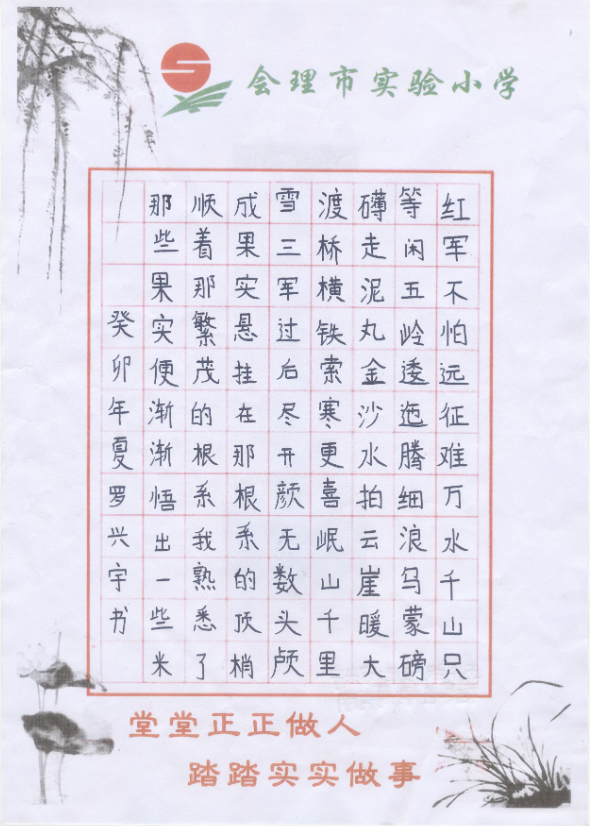 会理市实验小学
红军不怕远征难万水千山只
等闲五岭逶迤腾细浪乌蒙磅
礴走泥丸金沙水拍云崖暖大
渡桥横铁索寒更喜岷山千里
雪三军过后尽开颜无数头颅
成果实悬挂在那根系的顶梢
顺着那繁茂的根系我熟悉了
那些果实便渐渐悟出一些米
癸卯年夏罗兴宇书
堂堂正正做人
踏踏实实做事